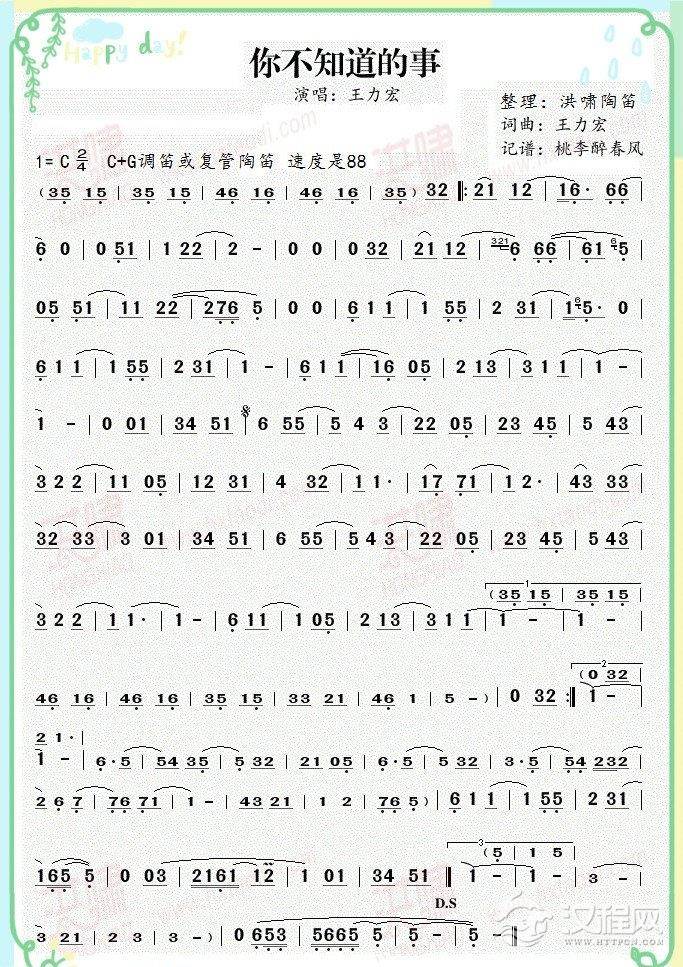 Happy day!
你不知道的事
演唱：王力宏
整理：洪啸陶笛
词曲：王力宏
记谱：桃李醉春风
1= C 2/4 C+G调笛或复管陶笛 速度是88
(35 15 | 35 15 | 46 16 | 46 16 | 35) 32 ‖: 21 12 | 16· 66 |
6 0 | 0 51 | 1 22 | 2 - | 0 0 | 0 32 | 21 12 | 321 6 66 | 61 6 5 |
05 51 | 11 22 | 276 5 | 0 0 | 6 1 1 | 1 55 | 2 31 | 1 6 5· 0
6 1 1 | 1 55 | 2 31 | 1 - | 6 1 1 | 16 05 | 2 13 | 3 1 1 | 1 - |
1 - | 0 01 | 34 51 | 6 55 | 5 4 3 | 22 05 | 23 45 | 5 43 |
3 2 2 | 11 05 | 12 31 | 4 32 | 1 1· | 17 71 | 12· | 43 33 |
32 33 | 3 01 | 34 51 | 6 55 | 5 4 3 | 22 05 | 23 45 | 5 43 |
1
(35 15 | 35 15 |
3 2 2 | 1 1· | 1 - | 6 11 | 1 05 | 2 13 | 3 1 1 | 1 - | 1 - |
2
(0 32
46 16 | 46 16 | 35 15 | 33 21 | 46 1 | 5 - ) | 0 32 :‖ 1 -
2 1· |
1 - | 6·5 | 54 35 | 54 32 | 21 05 | 6·5 | 5 32 | 3·5 | 54 232
2 6 7 | 76 71 | 1 - | 43 21 | 1 2 | 76 5) | 6 1 1 | 1 55 | 2 31 |
3
(5 | 1 5
165 5 | 0 03 | 2161 12 | 1 01 | 34 51 ‖ 1 - | 1 - | 3 - |
D.S
3 21 | 2 3 | 3 - ) | 0 653 | 5665 5 | 5 - | 5 - ‖
汉程网
WWW.HTTPCN.COM